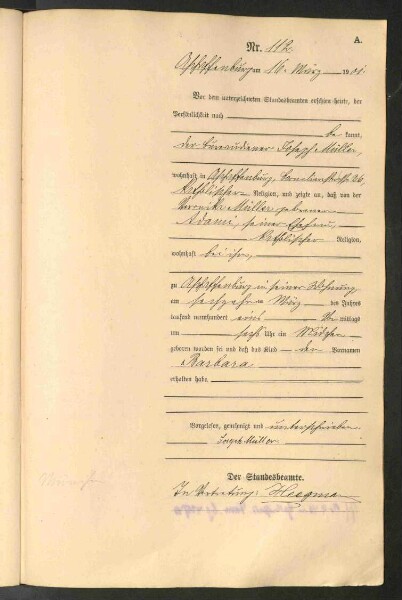 A.
Nr. 112.
Aschaffenburg am 16. März 1901.
Vor dem unterzeichneten Standesbeamten erschien heute, der
Persönlichkeit nach
be kannt,
der Bureaudiener Joseph Müller,
wohnhaft in Aschaffenburg,
katholischer Religion, und zeigte an, daß von der
Veronika Müller, geborenen
Adami, seiner Ehefrau,
katholischer Religion,
wohnhaft bei ihm,
zu Aschaffenburg in seiner Wohnung
am sechzehnten März des Jahres
tausend neunhundert eins Vormittags
um sechs Uhr ein Mädchen
geboren worden sei und daß das Kind den Vornamen
Barbara
erhalten habe.
Vorgelesen, genehmigt und unterschrieben
Joseph Müller.
Der Standesbeamte.
In Vertretung: